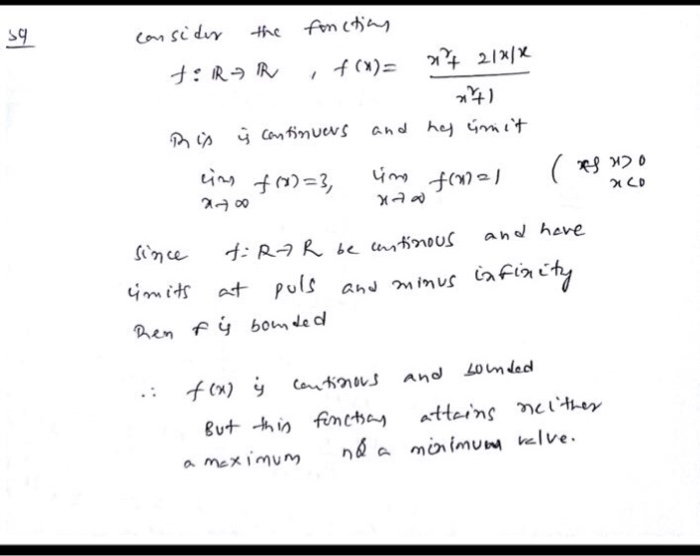 39
consider the function
f: R → R , f(x) = x² + 2|x|x / x²+1
This is continuous and has limit
lim x→∞ f(x) = 3, lim x→∞ f(x) = 1 ( x>0
x<0
Since f: R→R be continous and have
limits at puls and minus infinity
Then f is bounded
∴ f(x) is continous and bounded
But this function attains neither
a maximum a minimum value.